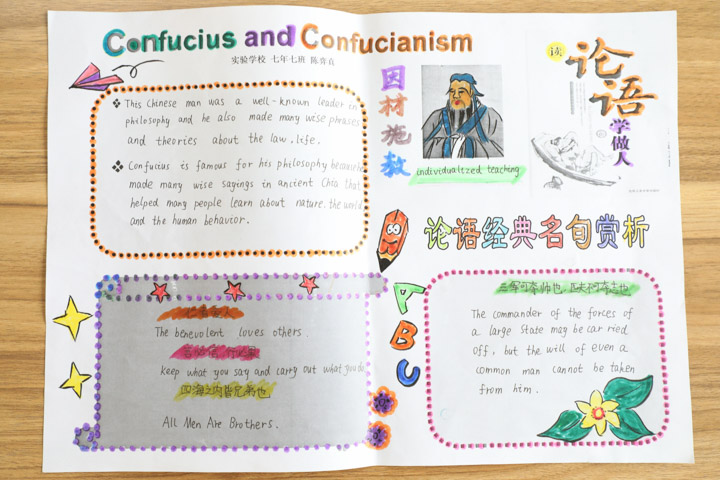 Confucius and Confucianism
实验学校 七年七班
This Chinese man was a well-known leader in
philosophy and he also made many wise phrases
and theories about the law. life.
Confucius is famous for his philosophy because he
made many wise sayings in ancient Chia that
helped many people learn about nature. the world
and the human behavior.
因材施教
individualized teaching
读
论语
学做人
论语经典名句赏析
仁者爱人
The benevolent loves others
言必信,行必果
keep what you say and carry out what you do
四海之内皆兄弟也
All Men Are Brothers.
A
B
C
三军可夺帅也,匹夫不可夺志也
The commander of the forces of
a large State may be car ried
off, but the will of even a
common man cannot be taken
from him.